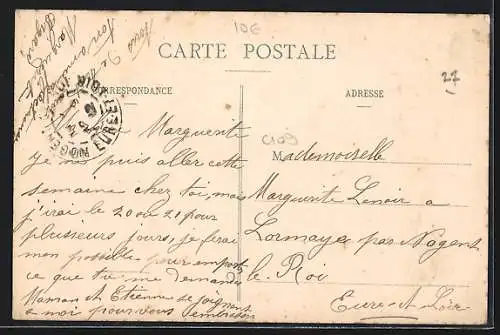 10€
CARTE POSTALE
CORRESPONDANCE
ADRESSE
27
C109
Marguerite
Je ne puis aller cette
semaine chez toi, mais
j'irai le 20 ou 21 pour
plusieurs jours, je ferai
mon possible pour emporter
ce que tu me demandes
Maman et Etienne se joignent
a moi pour vous embrasser
Mademoiselle
Marguerite Lenoir a
Lormaye par Nogent
le Roi
Eure-et-Loir